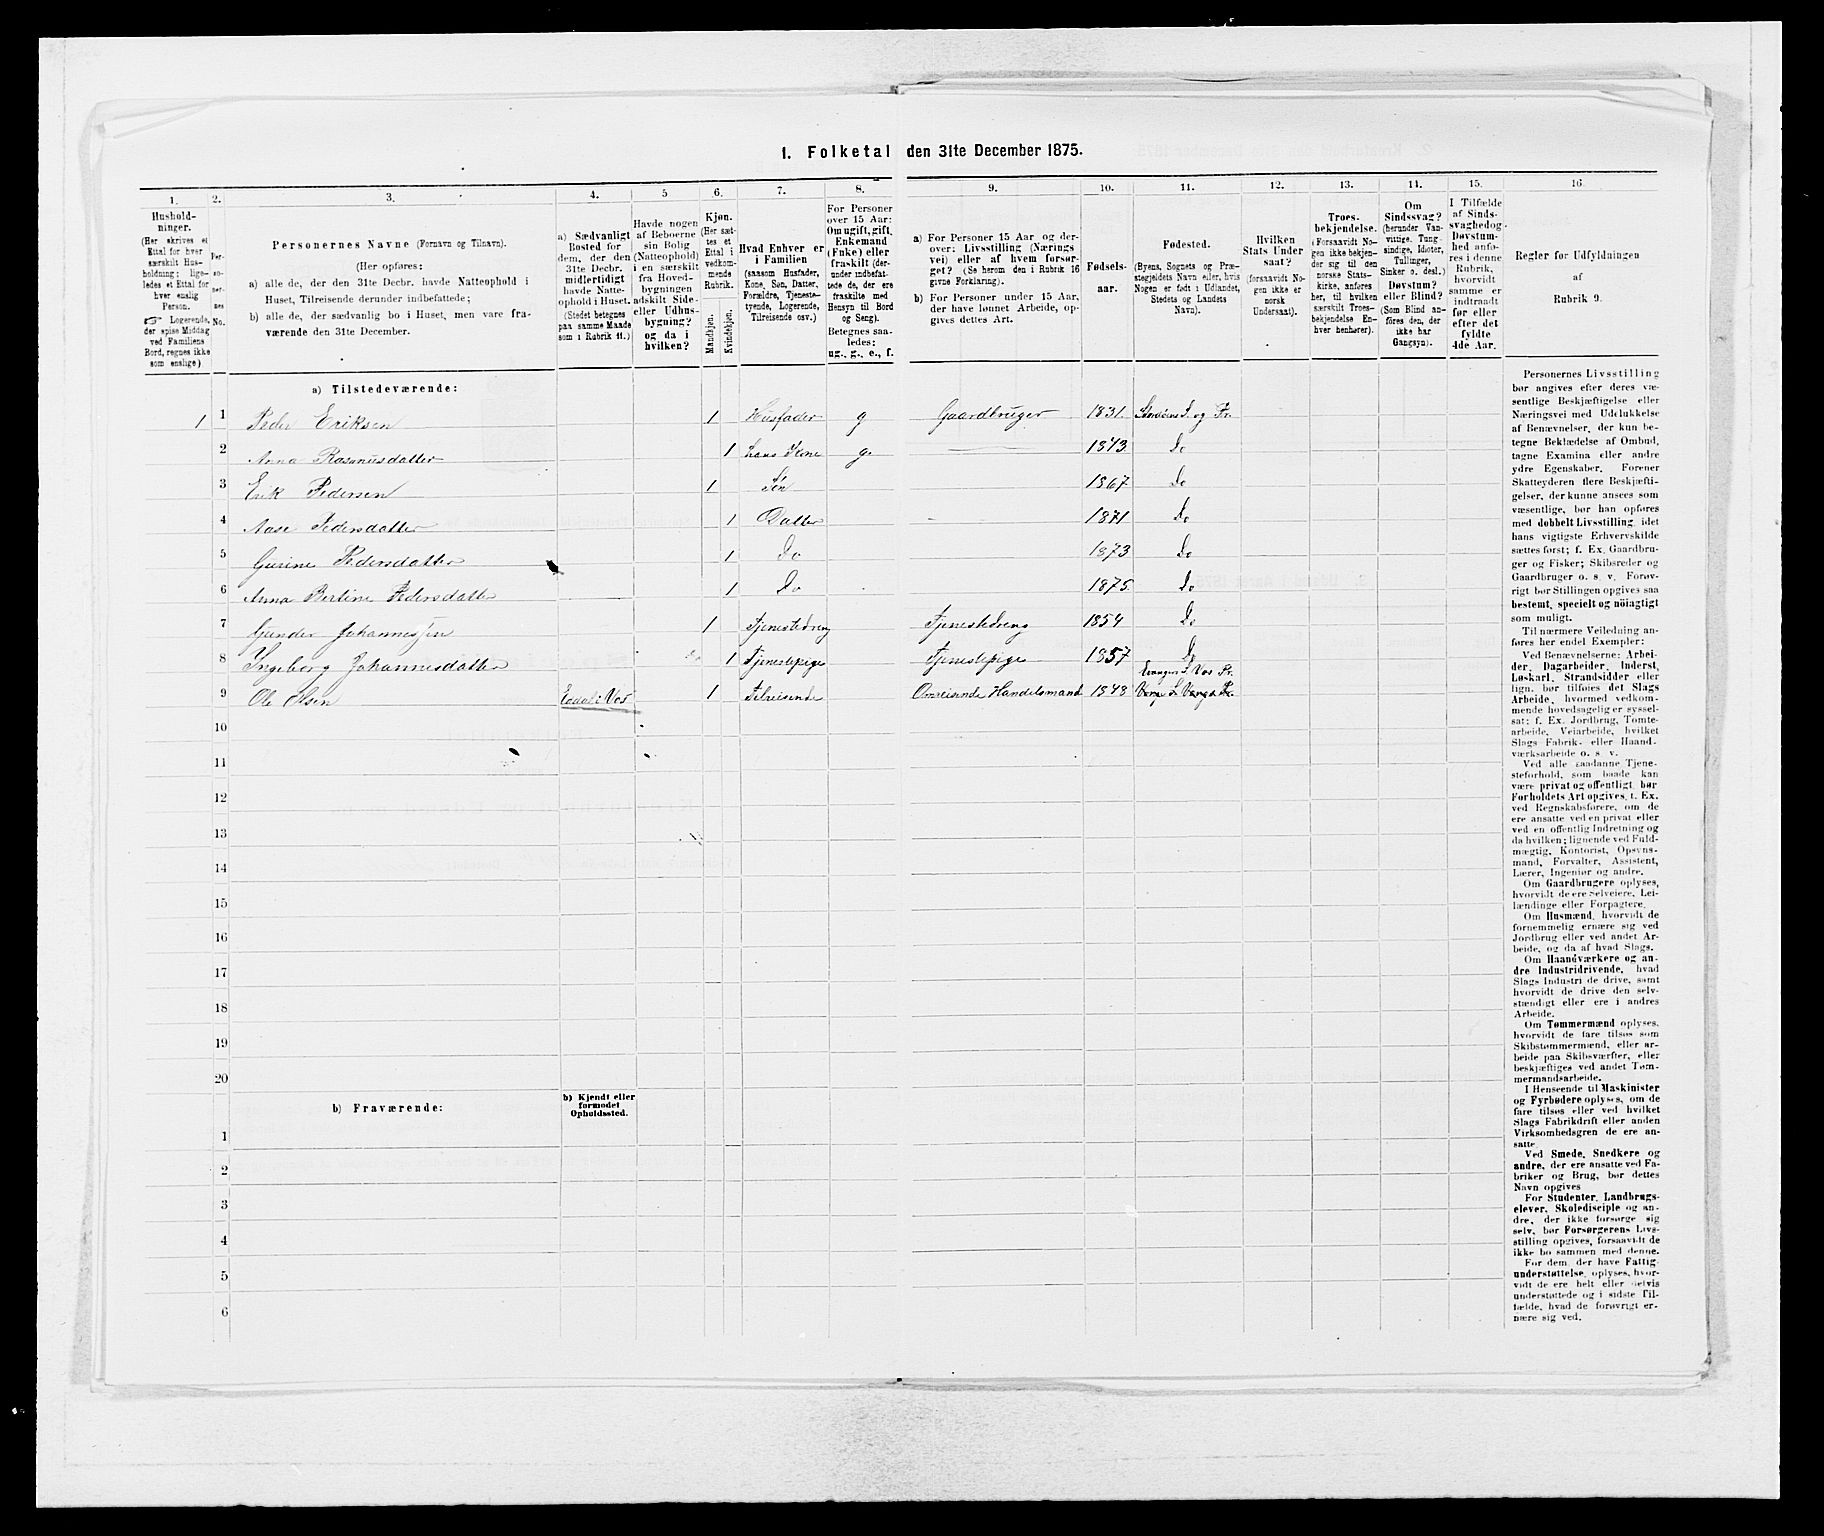 1. Folketal den 31te December 1875.
1.
2.
3.
4.
5
6.
7.
8.
9.
10.
11.
12.
13.
14.
15.
16.
Hushold-
ninger.
(Her skrives et
Ettal for hver
særskilt Hus-
holdning; lige-
ledes et Ettal for
hver enslig
Person.
☞ Logerende,
der spise Middag
ved Familiens
Bord, regnes ikke
som enslige)
Per-
so-
ner-
nes
No.
Personernes Navne (Fornavn og Tilnavn).
(Her opføres:
a) alle de, der den 31te Decbr. havde Natteophold i
Huset, Tilreisende derunder indbefattede;
b) alle de, der sædvanlig bo i Huset, men vare fra-
værende den 31te December.
a) Sædvanligt
Bosted for
dem, der den
31te Decbr.
midlertidigt
havde Natte-
ophold i Huset.
(Stedet betegnes
paa samme Maade
som i Rubrik 11.)
Havde nogen
af Beboerne
sin Bolig
(Natteophold)
i en særskilt
fra Hoved-
bygningen
adskilt Side-
eller Udhus-
bygning?
og da i
hvilken?
Kjøn.
(Her sæt-
tes et
Ettal i
vedkom-
mende
Rubrik.
Mandkjøn.
Kvindekjøn.
Hvad Enhver er
i Familien
(saasom Husfader,
Kone, Søn, Datter,
Forældre, Tjeneste-
tyende, Logerende,
Tilreisende osv.)
For Personer
over 15 Aar:
Om ugift, gift,
Enkemand
(Enke) eller
fraskilt (der-
under indbefat-
tede de, der ere
fraskilte med
Hensyn til Bord
og Seng).
Betegnes saa-
ledes:
ug., g., e., f.
a) For Personer 15 Aar og der-
over: Livsstilling (Nærings
vei) eller af hvem forsør-
get? (Se herom den i Rubrik 16
givne Forklaring).
b) For Personer under 15 Aar,
der have lønnet Arbeide, op-
gives dettes Art.
Fødsels-
aar.
Fødested.
(Byens, Sognets og Præ-
stegjeldets Navn eller, hvis
Nogen er født i Udlandet,
Stedets og Landets
Navn).
Hvilken
Stats Under
saat?
(forsaavidt No-
gen ikke er
norsk
Undersaat).
Troes-
bekjendelse.
(Forsaavidt No-
gen ikke bekjen-
der sig til den
norske Stats-
kirke, anføres
her, til hvilken
særskilt Troes-
bekjendelse En-
hver henhører).
Om
Sindssvag?
(herunder Van-
vittige, Tung-
sindige, Idioter,
Tullinger,
Sinker o. desl.)
Døvstum?
eller Blind?
(Som Blind an-
føres den, der
ikke har
Gangsyn).
I Tilfælde
af Sinds-
svaghedog
Døvstum-
hed anfø-
res i denne
Rubrik,
hvorvidt
samme er
indtraadt
før eller
efter det
fyldte
4de Aar.
Regler for Udfyldningen
af
Rubrik 9.
a) Tilstedeværende:
1 1 Peder Eriksen 1 Husfader g Gaardbruger 1831. S. og Pr.
2 Anna Rasmusdatter 1 hans Kone g. 1843. Do
3 Erik Pedersen 1 Søn 1867. Do
4 Aase Pedersdatter 1 Datter 1871. Do
5 Gurine Pedersdatter 1 Do 1873 Do
6 Anna Bertine Pedersdatter 1 Do 1875. Do
7 Gunder Johannessen 1 Tjenestedreng Tjenestedreng 1854 Do
8 Ingeborg Johannesdatter 1 Tjenestepige Tjenestepige 1857 Do
Evanger S. Vos Pr.
9 Ole Olsen i Vos 1 Tilreisende Omreisende Handelsmand 1848
10
11
12
13
14
15
16
17
18
19
20
b) Fraværende:
b) Kjendt eller
formodet
Opholdssted.
1
2
3
4
5
6
Personernes Livsstilling
bør angives efter deres væ-
sentlige Beskjæftigelse eller
Næringsvei med Udelukkelse
af Benævnelser, der kun be-
tegne Beklædelse af Ombud,
tagne Examina eller andre
ydre Egenskaber. Forener
Skatteyderen flere Beskjæfti-
gelser, der kunne ansees som
væsentlige, bør han opføres
med dobbelt Livsstilling, idet
hans vigtigste Erhvervskilde
sættes først; f. Ex. Gaardbru-
ger og Fisker; Skibsreder og
Gaardbruger o. s. v. Forøv-
rigt bør Stillingen opgives saa
bestemt, specielt og nøiagtigt
som muligt.
Til nærmere Veiledning an-
føres her endel Exempler:
Ved Benævnelserne: Arbei-
der, Dagarbeider, Inderst,
Løskarl, Strandsidder eller
lign. bør tilføies det Slags
Arbeide, hvormed vedkom-
mende hovedsagelig er syssel-
sat; f. Ex. Jordbrug, Tomte-
arbeide, Veiarbeide, hvilket
Slags Fabrik- eller Haand-
værksarbeide o. s. v.
Ved alle saadanne Tjene-
steforhold, som baade kan
være privat og offentligt, bør
Forholdets Art opgives, t. Ex.
ved Regnskabsførere, om de
ere ansatte ved en privat eller
ved en offentlig Indretning og
da hvilken; lignende ved Fuld-
mægtig, Kontorist, Opsyns-
mand, Forvalter, Assistent,
Lærer, Ingeniør og andre.
Om Gaardbrugere oplyses,
hvorvidt de ere Selveiere, Lei-
lændinge eller Forpagtere.
Om Husmænd, hvorvidt de
fornemmelig ernære sig ved
Jordbrug eller ved andet Ar-
beide, og da af hvad Slags.
Om Haandværkere og an-
dre Industridrivende, hvad
Slags Industri de drive, samt
hvorvidt de drive den selv-
stændigt eller ere i andres
Arbeide.
Om Tømmermænd oplyses,
hvorvidt de fare tilsøs som
Skibstømmermænd, eller ar-
beide paa Skibsværfter, eller
beskjæftiges ved andet Tøm-
mermandsarbeide.
I Henseende til Maskinister
og Fyrbødere oplyses, om de
fare tilsøs eller ved hvilket
Slags Fabrikdrift eller anden
Virksomhedsgren de ere an-
satte.
Ved Smede, Snedkere og
andre, der ere ansatte ved Fa-
briker og Brug, bør dettes
Navn opgives
For Studenter, Landbrugs-
elever, Skoledisciple og an-
dre, der ikke forsørge sig
selv, bør Forsørgerens Livs-
stilling opgives, forsaavidt de
ikke bo sammen med denne.
For dem, der have Fattig-
understøttelse, oplyses, hvor-
vidt de ere helt eller delvis
understøttede og i sidste Til-
fælde, hvad de forøvrigt er-
nære sig ved.